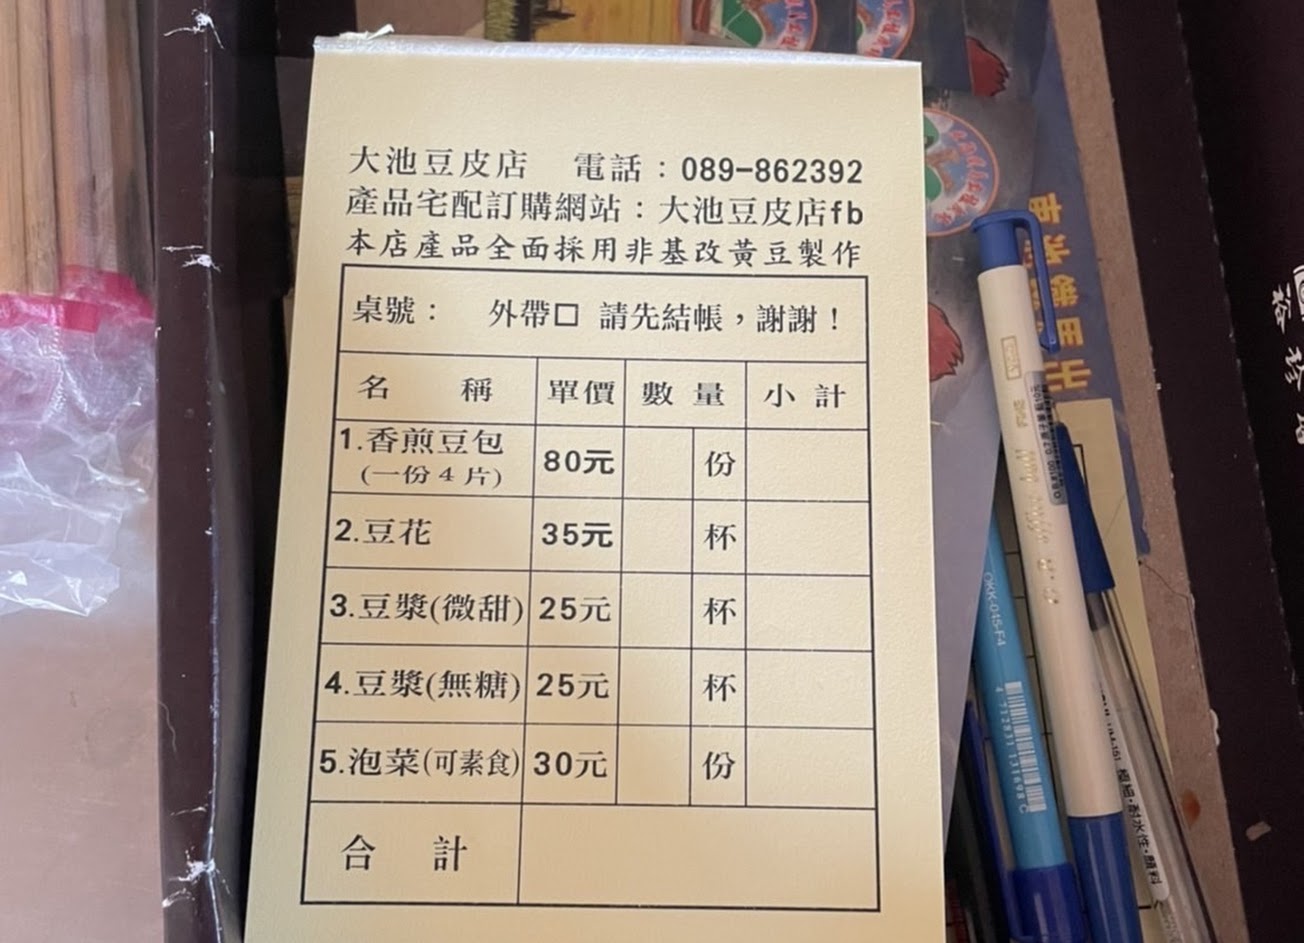 大池豆皮店 電話：089-862392
產品宅配訂購網站：大池豆皮店fb
本店產品全面採用非基改黃豆製作
桌號： 外帶□ 請先結帳，謝謝！
名稱 單價 數量 小計
1.香煎豆包 80元 份
(一份4片)
2.豆花 35元 杯
3.豆漿(微甜) 25元 杯
4.豆漿(無糖) 25元 杯
5.泡菜(可素食) 30元 份
合計
OKK-045-F4